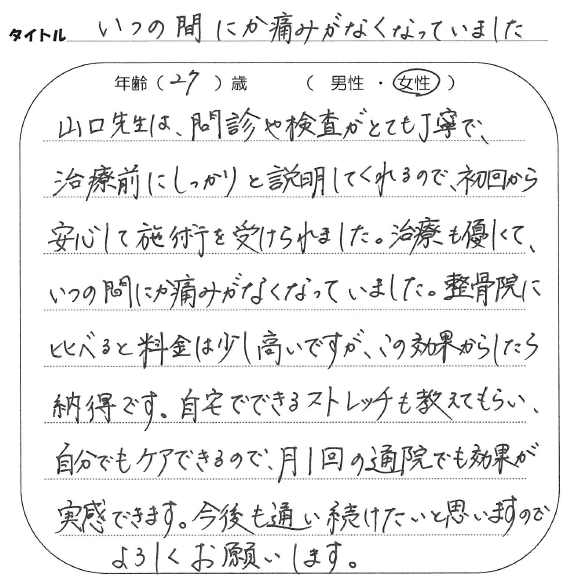 タイトル いつの間にか痛みがなくなっていました
年齢（27）歳 （ 男性 ・ 女性 ）
山口先生は、問診や検査がとても丁寧で、
治療前にしっかりと説明してくれるので、初回から
安心して施術を受けられました。治療も優しくて、
いつの間にか痛みがなくなっていました。整骨院に
比べると料金は少し高いですが、この効果からしたら
納得です。自宅でできるストレッチも教えてもらい、
自分でもケアできるので、月1回の通院でも効果が
実感できます。今後も通い続けたいと思いますので
よろしくお願いします。